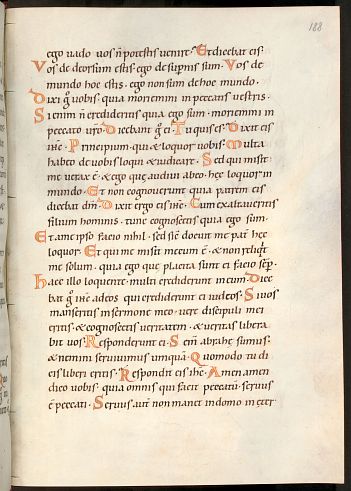 188
ego uado uos n̄ potestis uenire · Et dicebat eis ·
Vos de deorsum estis · ego de supnis sum · Vos de
mundo hoc estis · ego non sum de hoc mundo ·
Dixi g̊ uobis · quia moriemini in peccatis uestris ·
Si enim n̄ credideritis quia ego sum · moriemini in
peccato ur̄o · Dicebant g̊ ei · Tu quis es · Dixit eis
ih̄c · Principium · qui & loquor uobis · Multa
habeo de uobis loqui & iudicare · Sed qui misit
me uerax ē · & ego quę audiui ab eo · hęc loquor in
mundo · Et non cognouerunt quia patrem eis
dicebat dm̄ · Dixit ergo eis ih̄c · Cum exaltaueritis
filium hominis · tunc cognoscetis quia ego sum ·
Et a me ipso facio nihil · sed sic̄ docuit me pat̄ hęc
loquor · Et qui me misit mecum ē · & non reliqt
me solum · quia ego que placita sunt ei facio sēp ·
Haec illo loquente · multi crediderunt in eum · Dice
bat g̊ ih̄c ad eos qui crediderunt ei iudeos · Si uos
manseritis in sermone meo · uere discipuli mei
eritis · & cognoscetis ueritatem · & ueritas libera
bit uos · Responderunt ei · Sem̄ abrahę sumus ·
& nemini seruiuimus umquā · Quomodo tu di
cis liberi eritis · Respondit eis ih̄c · Amen amen
dico uobis · quia omnis qui facit peccatū · seruus
ē peccati · Seruus aut̄ non manet in domo in et̄er